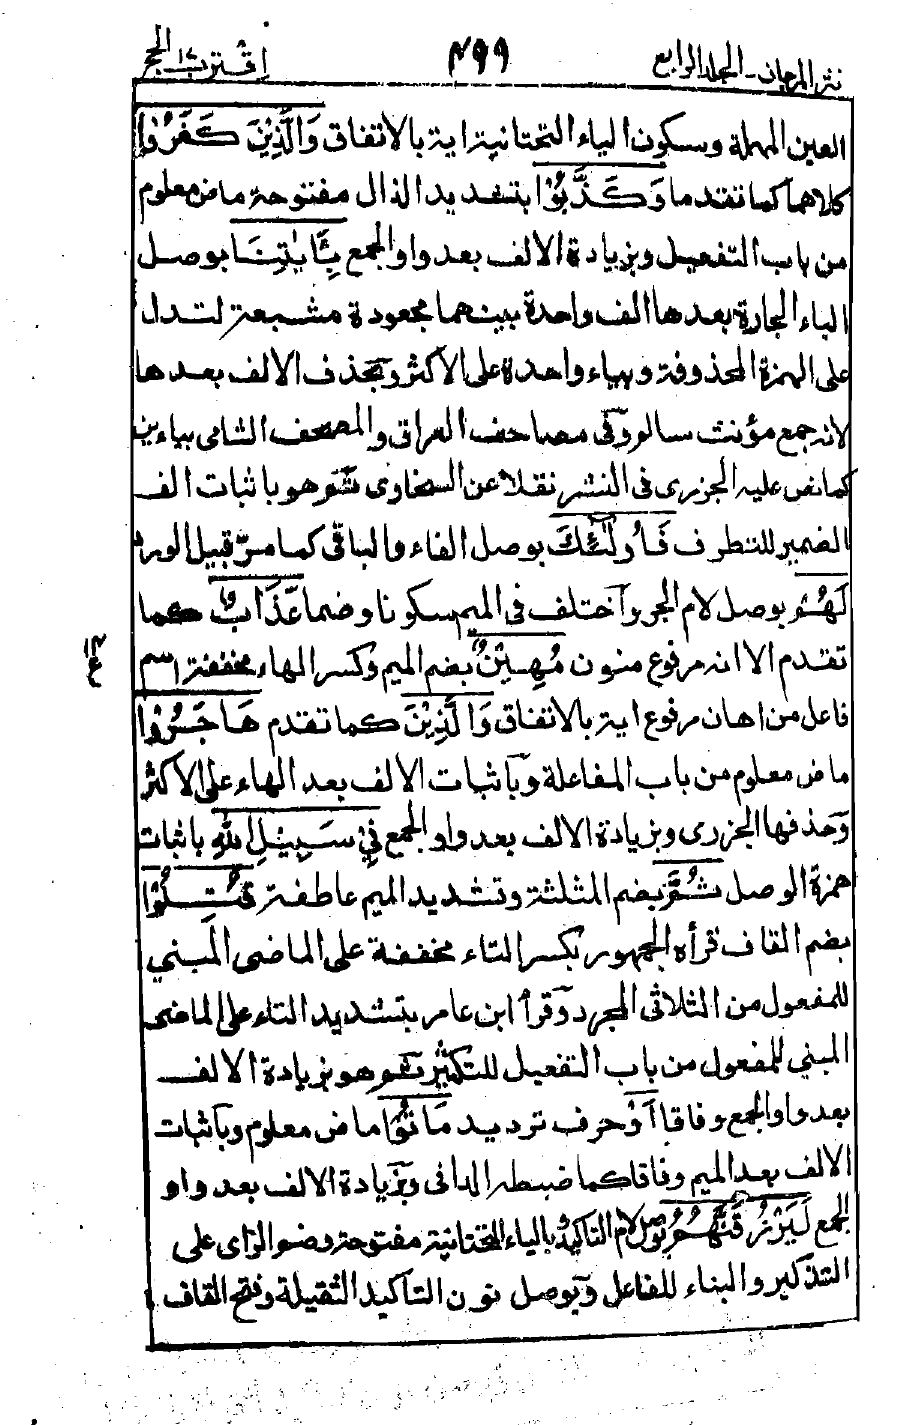 نثر المرجان - المجلد الرابع ٤٩٩ اقترب ١٧ الحج
العين المهملة وسكون الياء التحتانية اية بالاتفاق وَالَّذِيْنَ كَفَرُوْا
كلاهما كما تقدما وَكَذَّبُوْا بتشديد الذال مفتوحة ماض معلوم
من باب التفعيل وبزيادة الالف بعد واو الجمع بِاٰيٰتِنَا بوصل
الباء الجارة بعدها الف واحدة بينهما مجعودة مشبعة لتدل
على الهمزة المحذوفة وبياء واحدة على الاكثر وبحذف الالف بعدها
لانه جمع مؤنث سالم وفى مصاحف العراق والمصحف الشامى بياءين
كما نص عليه الجزرى فى النشر نقلا عن السخاوى ثم هو باثبات الف
الضمير للتطرف فَاُولٰٓئِكَ بوصل الفاء والباقى كما مر قبيل الورد
لَهُمْ بوصل لام الجر واختلف فى الميم سكونا وضما عَذَابٌ كما
تقدم الا انه مرفوع منون مُهِيْنٌ بضم الميم وكسر الهاء مخففة اسم
فاعل من اهان مرفوع اية بالاتفاق وَالَّذِيْنَ كما تقدم هَاجَرُوْا
ماض معلوم من باب المفاعلة وباثبات الالف بعد الهاء على الاكثر
وحذفها الجزرى وبزيادة الالف بعد واو الجمع فِيْ سَبِيْلِ اللّٰهِ باثبات
همزة الوصل ثُمَّ بضم المثلثة وتشديد الميم عاطفة قُتِلُوْا
بضم القاف قرأه الجمهور بكسر التاء مخففة على الماضى المبني
للمفعول من الثلاثى المجرد وقرأ ابن عامر بتشديد التاء على الماضى
المبني للمفعول من باب التفعيل للتكثير ثم هو بزيادة الالف
بعد واو الجمع وفاقا اَوْ حرف ترديد مَاتُوْا ماض معلوم وباثبات
الالف بعد الميم وفاقا كما ضبطه الدانى وبزيادة الالف بعد واو
الجمع لَيَرْزُقَنَّهُمُ بوصل لام التاكيد وبالياء التحتانية مفتوحة وضم الزاى على
التذكير والبناء للفاعل وبوصل نون التاكيد الثقيلة وفتح القاف